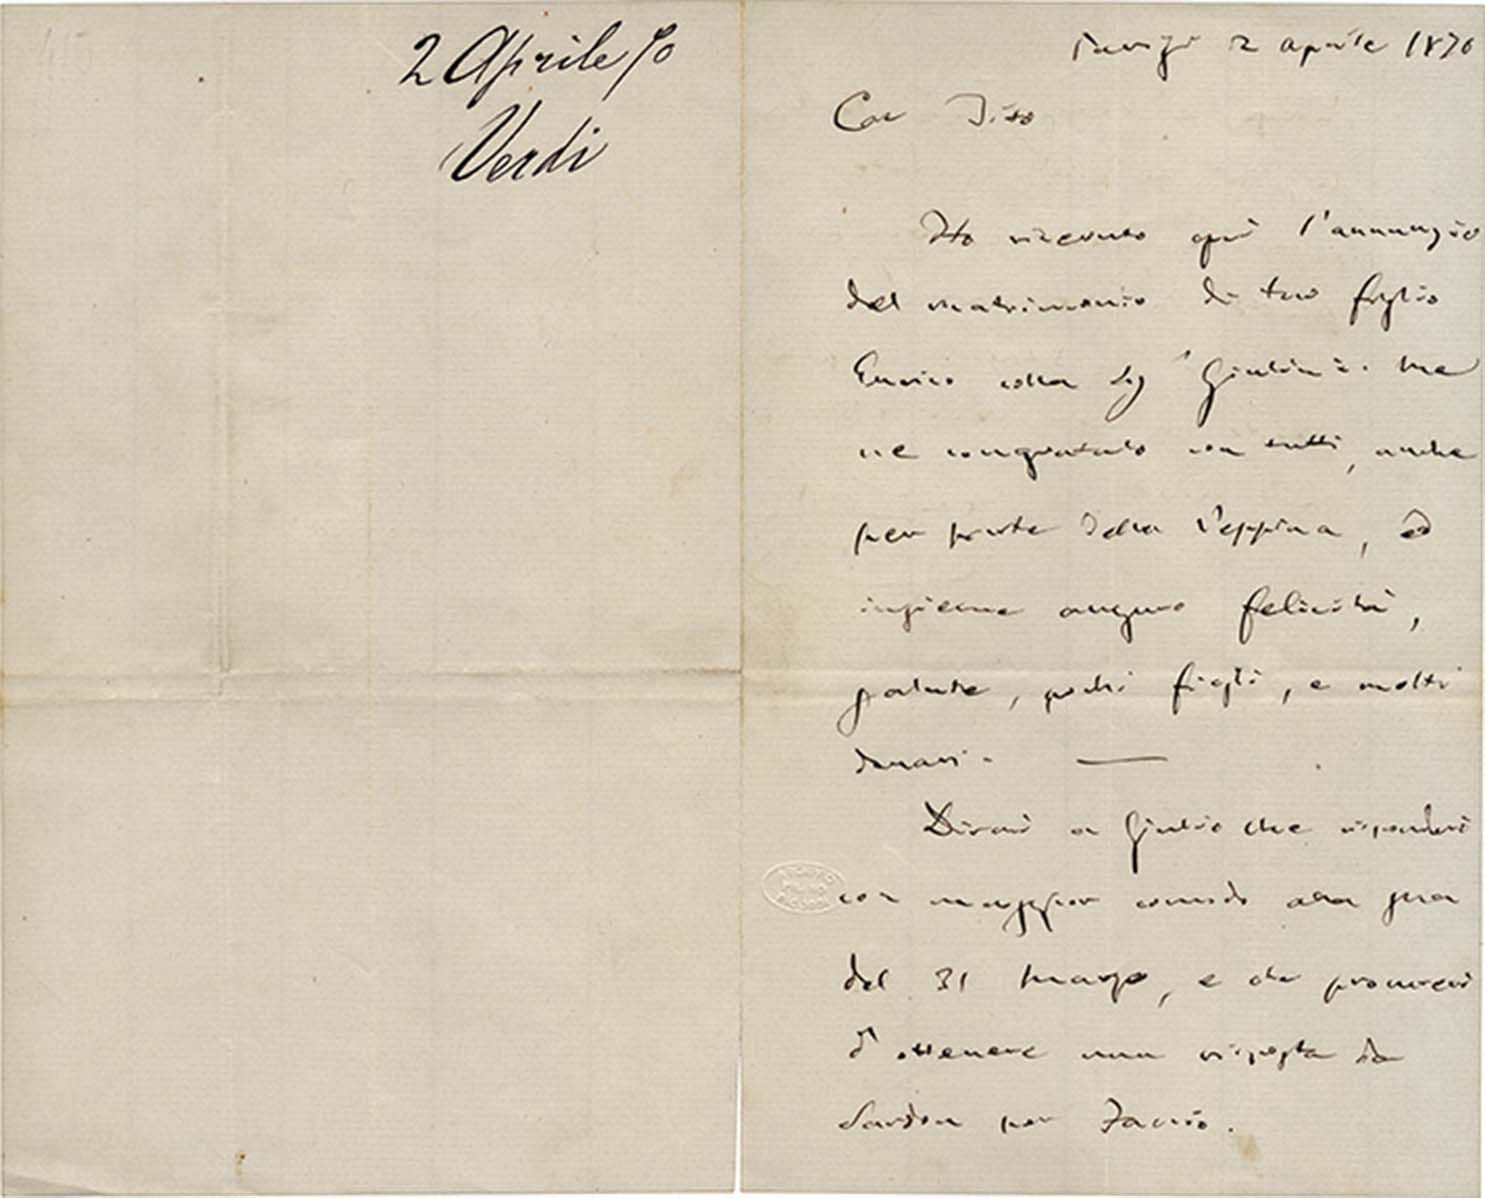 2 Aprile 70
Verdi
Parigi 2 aprile 1870
Car Tito
Ho ricevuto quì l'annunzio
del matrimonio di tuo figlio
Enrico colla Sig.ª Giulini. Me
ne congratulo con tutti, anche
per parte della Peppina, ed
insieme auguro felicità,
salute, pochi figli, e molti
danari. —
Dirai a Giulio che risponderò
con maggior comodo alla sua
del 31 marzo, e che procurerò
d'ottenere una risposta da
Sardou per Faccio.